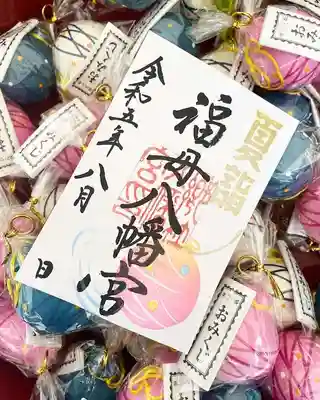 夏詣
福母八幡宮
令和五年八月 日
おみくじ
おみくじ
おみくじ
おみくじ